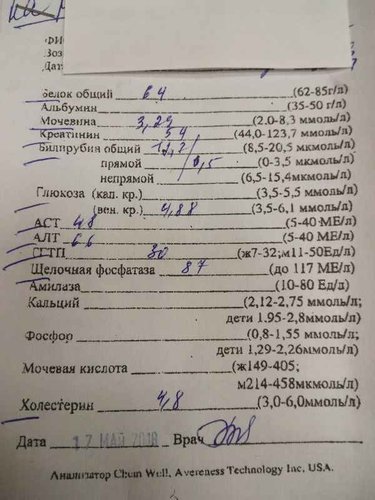 ФИ
Воз
Дат
Белок общий 64 (62-85г/л)
Альбумин (35-50 г/л)
Мочевина 3,29 (2.0-8,3 ммоль/л)
Креатинин 54 (44,0-123,7 ммоль/л)
Билирубин общий 11,2 (8,5-20,5 мкмоль/л)
прямой 0,5 (0-3,5 мкмоль/л)
непрямой (6,5-15,4мкмоль/л)
Глюкоза (кап. кр.) (3,5-5,5 ммоль/л)
(вен. кр.) 4,88 (3,5-6,1 ммоль/л)
АСТ 48 (5-40 МЕ/л)
АЛТ 66 (5-40 МЕ/л)
ГГТП 30 (ж7-32;м11-50Ед/л)
Щелочная фосфатаза 87 (до 117 МЕ/л)
Амилаза (10-80 Ед/л)
Кальций (2,12-2,75 ммоль/л;
дети 1.95-2,8ммоль/л)
Фосфор (0,8-1,55 ммоль/л;
дети 1,29-2,26ммоль/л)
Мочевая кислота (ж149-405;
м214-458мкмоль/л)
Холестерин 4,8 (3,0-6,0ммоль/л)
Дата 17 МАЙ Врач
Анализатор Chem Well, Avereness Technology Inc, USA.